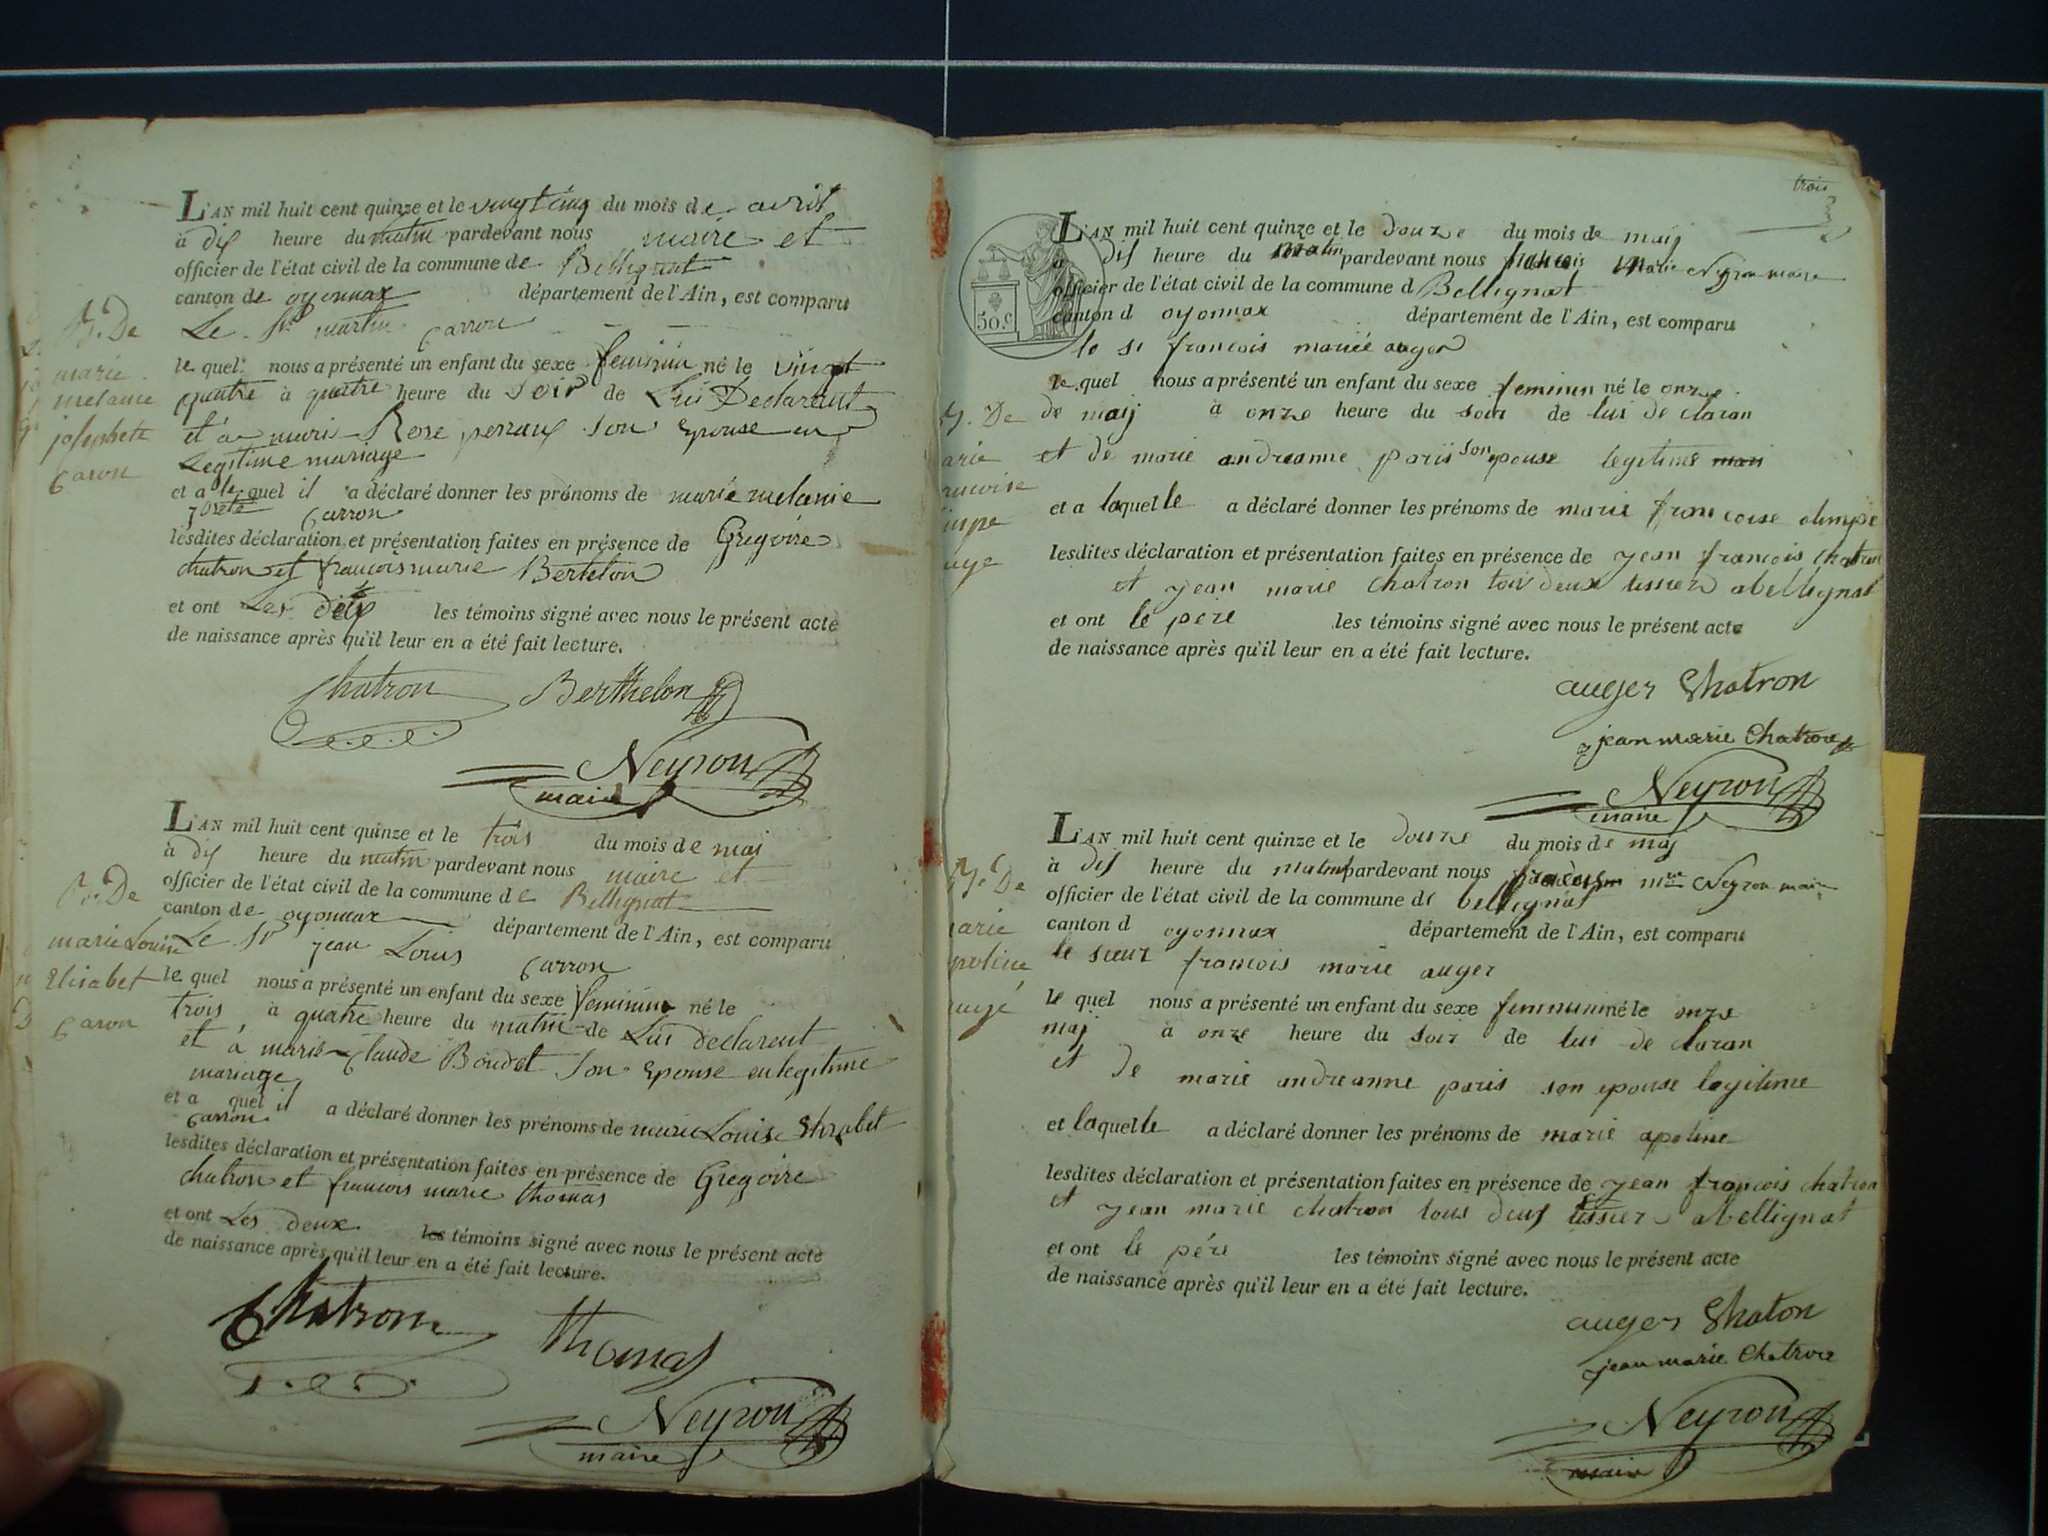 L'AN mil huit cent quinze et le vingt cinq du mois de avril
à dix heure du matin pardevant nous maire et
officier de l'état civil de la commune de Bellignat
canton de oyonnax département de l'Ain, est comparu
Le Sr martin Carron
N. De
marie
melanie
josephete
Caron
le quel nous a présenté un enfant du sexe feminin né le vingt
quatre à quatre heure du soir de Lui Declarant
et à marie Rose perraux son Epouse en
Legitime mariage
et a le quel il a déclaré donner les prénoms de marie melanie
Carron
lesdites déclaration et présentation faites en présence de Gregoire
chatron et francois marie Berthelon
et ont Les dits les témoins signé avec nous le présent acte
de naissance après qu'il leur en a été fait lecture.
Chatron Berthelon
Neyron
maire
L'AN mil huit cent quinze et le trois du mois de mai
à dix heure du matin pardevant nous maire et
officier de l'état civil de la commune de Bellignat
canton de oyonnax département de l'Ain, est comparu
Le Sr jean Louis Carron
N. De
marie Louise
Elisabet
Caron
le quel nous a présenté un enfant du sexe feminin né le
trois à quatre heure du matin de Lui declarent
et à marie Claude Boudet son Epouse en legitime
mariage
et a quel il a déclaré donner les prénoms de marie Louise
Carron
lesdites déclaration et présentation faites en présence de Gregoire
chatron et francois marie thomas
et ont Les deux les témoins signé avec nous le présent acte
de naissance après qu'il leur en a été fait lecture.
Chatron thomas
Neyron
maire
trois
50.c
L'AN mil huit cent quinze et le douze du mois de maij
dis heure du matin pardevant nous francois Marie Neyron maire
officier de l'état civil de la commune d Bellignat
canton d oyonnax département de l'Ain, est comparu
le sr francois mariée auger
le quel nous a présenté un enfant du sexe feminin né le onze
de maij à onze heure du soir de lui de claran
et de marie andreanne paris son epouse legitime mari
et a laquelle a déclaré donner les prénoms de marie francoise olimpe
lesdites déclaration et présentation faites en présence de jean francois chatron
et jean marie chatron tous deux tissier abellignat
et ont le père les témoins signé avec nous le présent acte
de naissance après qu'il leur en a été fait lecture.
auger Chatron
jean marie Chatron
Neyron
maire
L'AN mil huit cent quinze et le douze du mois de maj
à dis heure du matin pardevant nous francois mrie Neyron maire
officier de l'état civil de la commune de bellignat
canton d oyonnax département de l'Ain, est comparu
le sieur francois marie auger
le quel nous a présenté un enfant du sexe femininin né le onze
maj à onze heure du soir de lui de claran
et de marie andreanne paris son epouse legitime
et laquelle a déclaré donner les prénoms de marie apoline
lesdites déclaration et présentation faites en présence de jean francois chatron
et jean marie chatron tous deux tissier abellignat
et ont le père les témoins signé avec nous le présent acte
de naissance après qu'il leur en a été fait lecture.
auger Chaton
jean marie Chatron
Neyron
maire